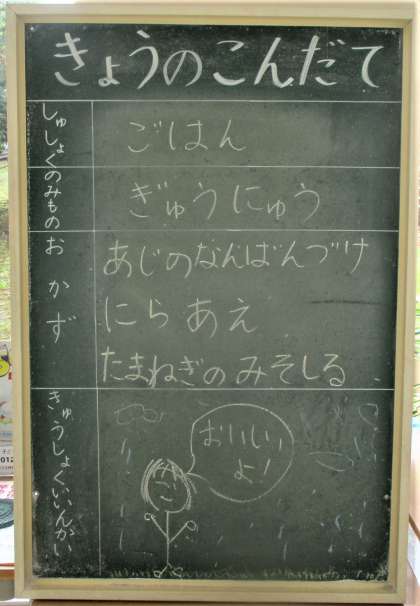 きょうのこんだて
しゅしょく
ごはん
のみもの
ぎゅうにゅう
おかず
あじのなんばんづけ
にらあえ
たまねぎのみそしる
きゅうしょくいいんかい
おいしい
よ!
012